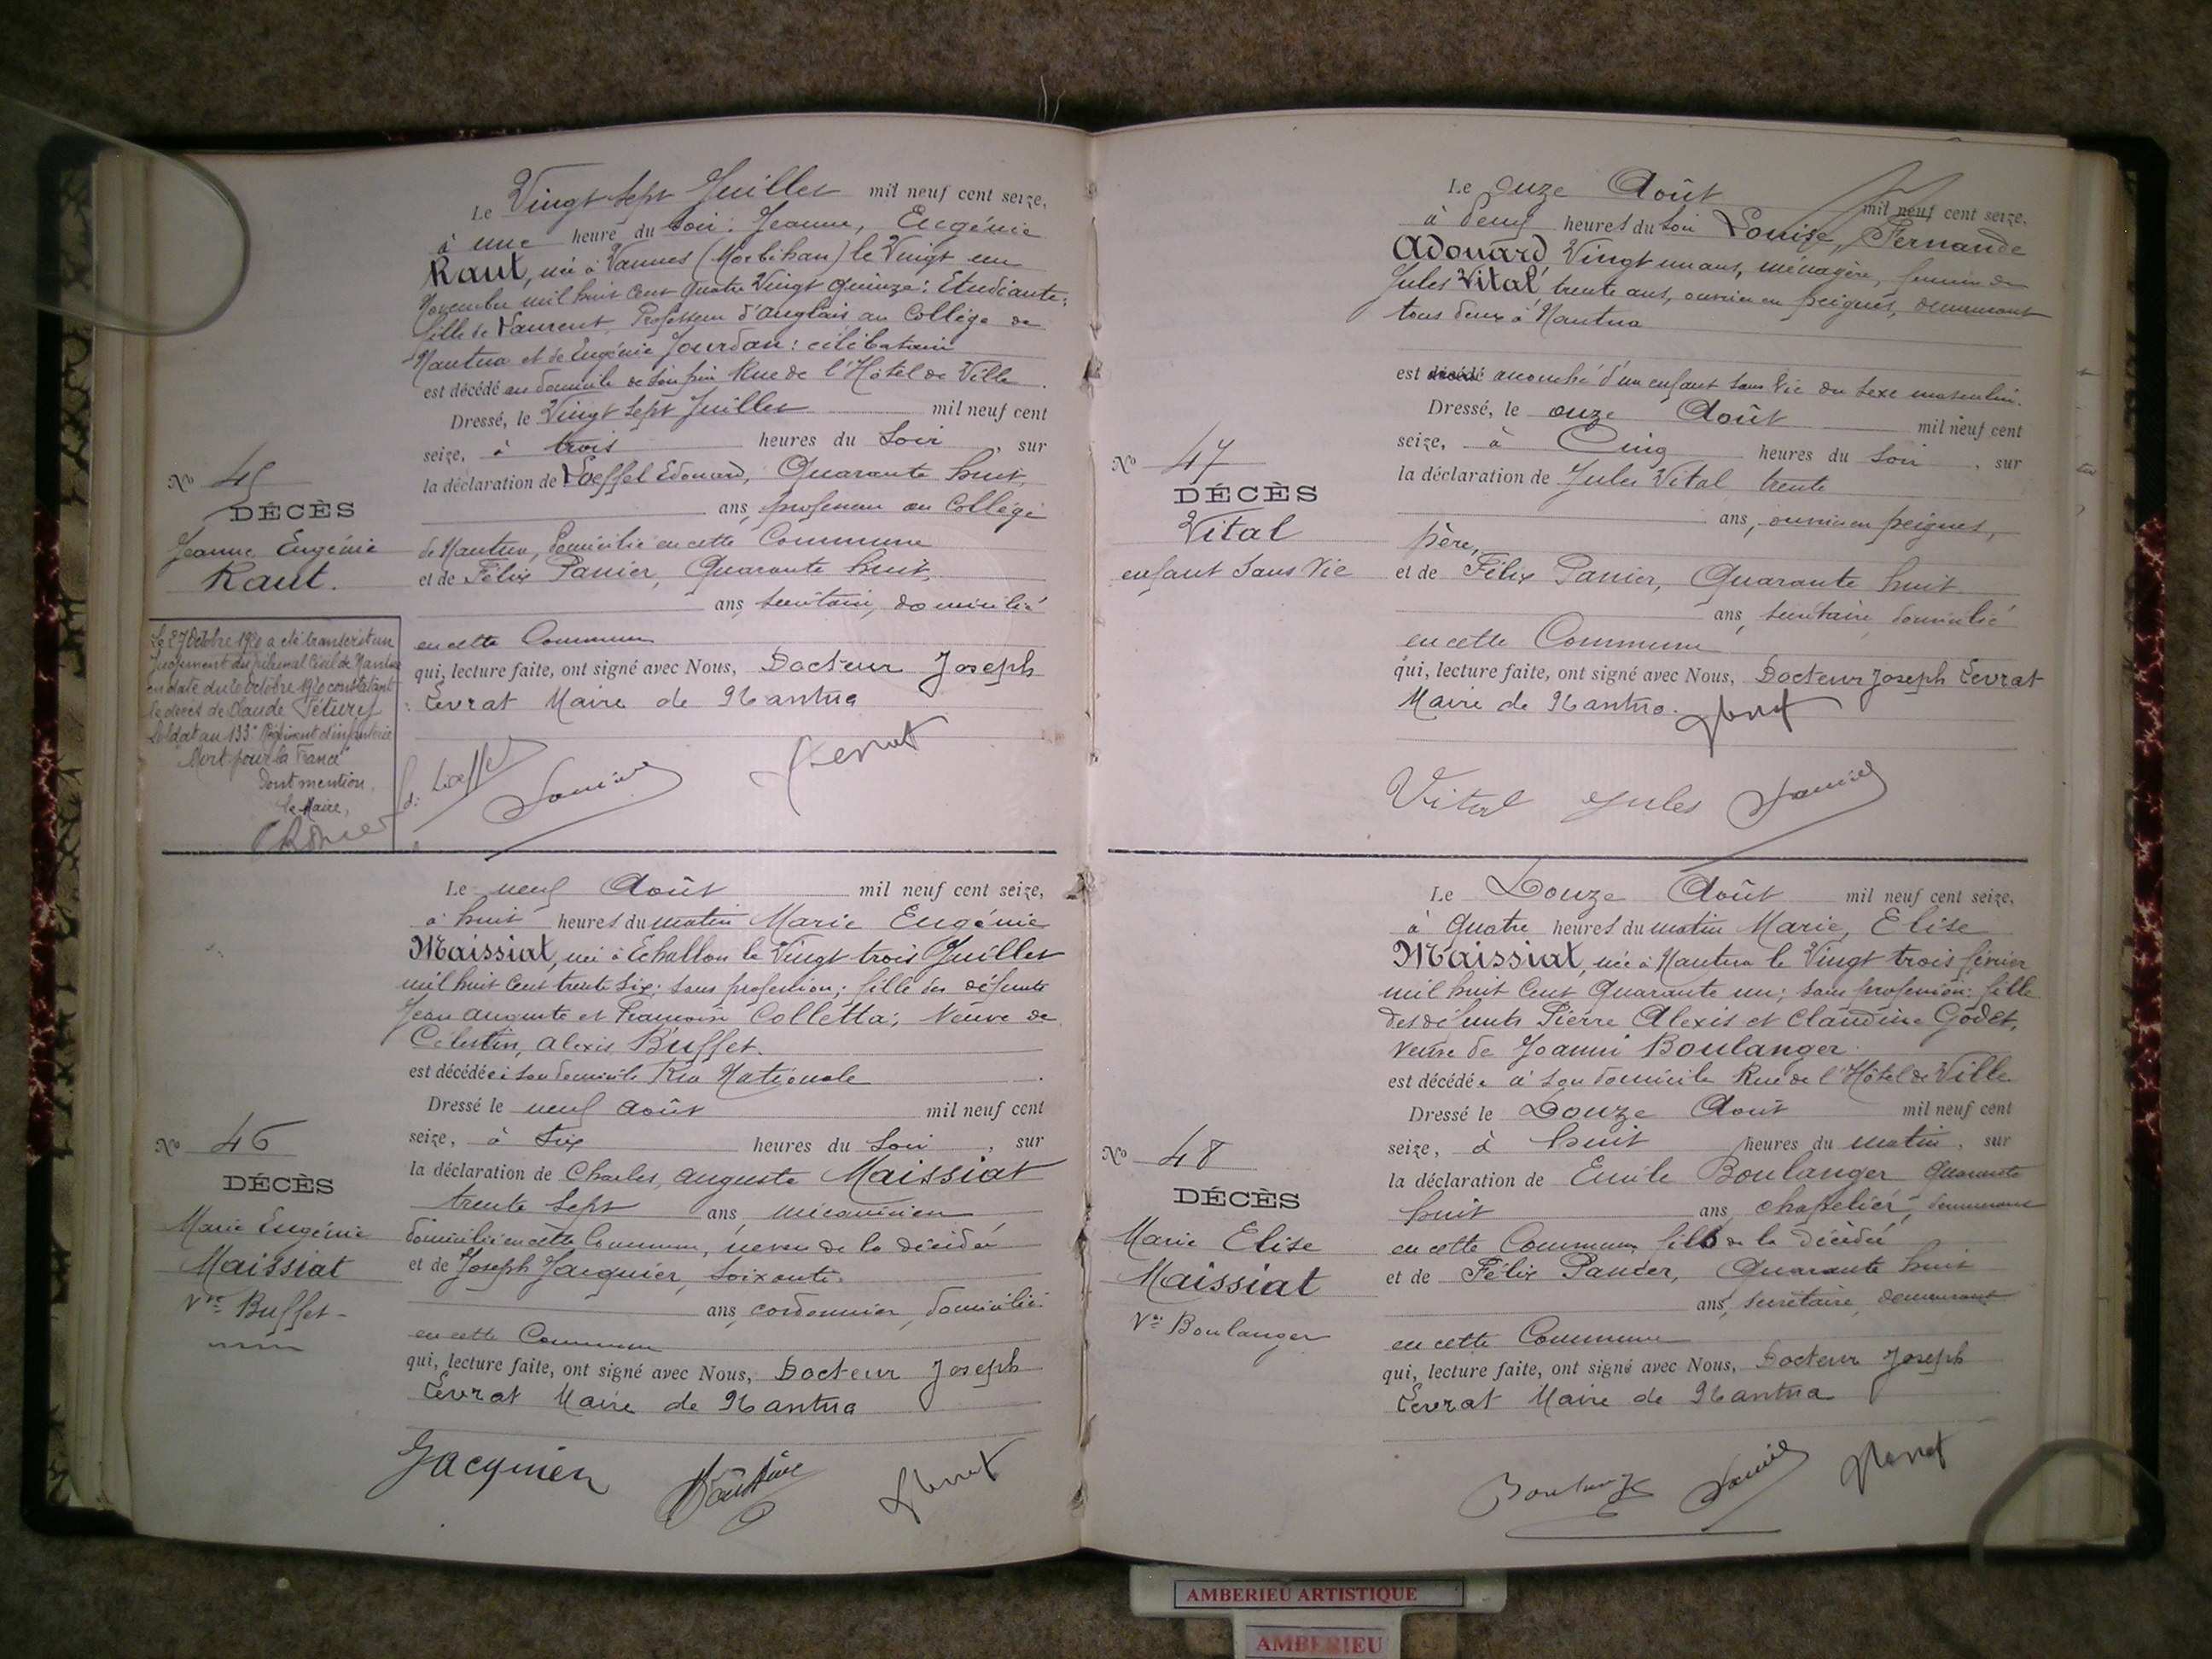 Le Vingt sept Juillet mil neuf cent seize,
à une heure du soir : Jeanne, Eugénie
Raut, née à Vannes (Morbihan) le Vingt un
Novembre mil huit cent quatre Vingt quinze : Etudiante ;
fille de Laurent, Professeur d'anglais au Collège de
Nantua et de Eugénie Jourdan : célibataire
est décédé au domicile de son père Rue de l'Hôtel de Ville.
Dressé, le Vingt sept Juillet mil neuf cent
seize, à trois heures du Soir, sur
la déclaration de Loeffel Edouard, Quarante huit
ans, professeur au Collège
de Nantua, domicilié en cette Commune
et de Félix Panier, Quarante huit,
ans, secrétaire, domicilié
en cette Commune
qui, lecture faite, ont signé avec Nous, Docteur Joseph
Levrat Maire de Nantua
No 45
DÉCÈS
Jeanne Eugénie
Raut.
Le 27 Octobre 1920 a été transcrit un
jugement du tribunal Civil de Nantua
en date du 20 Octobre 1920 constatant
le décès de Claude
Soldat au 133e Régiment d'infanterie
"Mort pour la France"
Dont mention,
le Maire,
Le neuf Août mil neuf cent seize,
à huit heures du matin Marie Eugénie
Maissiat, née à Echallon le Vingt trois Juillet
mil huit cent trente six ; sans profession ; fille des défunts
Jean auguste et Colletta ; Veuve de
Célestin, alexis Buffet.
est décédée à son domicile Rue Nationale
Dressé le neuf août mil neuf cent
seize, à six heures du Soir, sur
la déclaration de Charles, auguste Maissiat
trente sept ans, mécanicien
domicilié en cette Commune, neveu de la décédée
et de Joseph Jacquier, soixante
ans, cordonnier, domicilié
en cette Commune
qui, lecture faite, ont signé avec Nous, Docteur Joseph
Levrat Maire de Nantua
Jacquier
No 46
DÉCÈS
Marie Eugénie
Maissiat
Vve Buffet
Le onze Août mil neuf cent seize,
à deux heures du soir Louise, Fernande
Adouard Vingt un ans, ménagère, femme de
Jules Vital trente ans, ouvrier en peignes, demeurant
tous deux à Nantua
est décédé accouché d'un enfant sans vie du sexe masculin.
Dressé, le onze Août mil neuf cent
seize, à Cinq heures du Soir, sur
la déclaration de Jules Vital trente
ans, ouvrier en peignes,
père,
et de Félix Panier, Quarante huit
ans, secrétaire domicilié
en cette Commune
qui, lecture faite, ont signé avec Nous, Docteur Joseph Levrat
Maire de Nantua.
Vital Jules
No 47
DÉCÈS
Vital
enfant Sans Vie
Le Douze Août mil neuf cent seize,
à quatre heures du matin Marie, Elise
Maissiat, née à Nantua le Vingt trois février
mil huit cent Quarante un ; sans profession : fille
des défunts Pierre Alexis et Claudine Godet,
veuve de Joanni Boulanger
est décédée à son domicile Rue de l'Hôtel de Ville
Dressé le Douze Août mil neuf cent
seize, à huit heures du matin, sur
la déclaration de Emile Boulanger Quarante
huit ans, chapelier, demeurant
en cette Commune fils de la décédée
et de Félix Panier, Quarante huit
ans, secrétaire, demeurant
en cette Commune
qui, lecture faite, ont signé avec Nous, Docteur Joseph
Levrat Maire de Nantua
No 48
DÉCÈS
Marie Elise
Maissiat
Vve Boulanger
AMBERIEU ARTISTIQUE
AMBERIEU